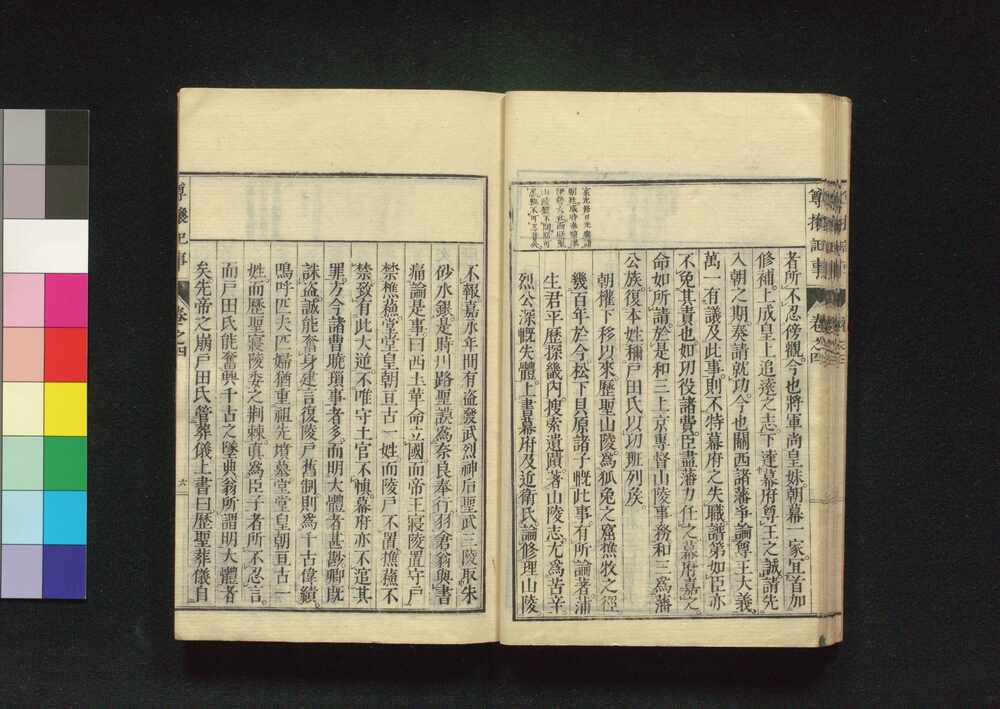 尊攘記事
卷之四
者所不忍傍觀。今也將軍尚皇妹。朝幕一家。宜首加
修補。上成皇上追遠之志。下達幕府尊王之誠。請先
入朝之期。奏請就功。今也關西諸藩爭論尊王大義。
萬一有議及此事。則不特幕府之失職。譜第如臣亦
不免其責也。如功役諸費。臣盡藩力任之。幕府嘉之。
命如所請。於是和三上京。專督山陵事務。和三爲藩
公族。復本姓稱戸田氏。以功班列矦
朝權下移以來。歷聖山陵。爲狐兔之窟。樵牧之徑
幾百年於今。松下貝原諸子慨此事。有所論著。蒲
生君平歷探畿內。搜索遺蹟。著山陵志。尤爲苦辛
烈公深慨失體。上書幕府及近衛氏。論修理山陵
不報。嘉永年間有盜發武烈神后聖武三陵。取朱
砂水銀。是時川路聖謨爲奈良奉行。羽倉翁與書
痛論是事曰。西土革命立國。而帝王寢陵置守戸
禁樵蘓。堂堂皇朝。亘古一姓。而陵戸不置。樵蘓不
禁。致有此大逆。不唯守土官不愼。幕府亦不逭其
罪。方今諸曹曉瑣事者多。而明大體者甚尠。卿旣
誅盜。誠能奮身建言。復陵戸舊制。則爲千古偉績。
嗚呼匹夫匹婦猶重祖先墳墓。堂堂皇朝。亘古一
姓。而歷聖寢陵委之荆棘。眞爲臣子者所不忍言。
而戸田氏能奮興千古之墜典。翁所謂明大體者
矣。先帝之崩。戸田氏管葬儀。上書曰。歷聖葬儀。自
尊攘記事
卷之四
六